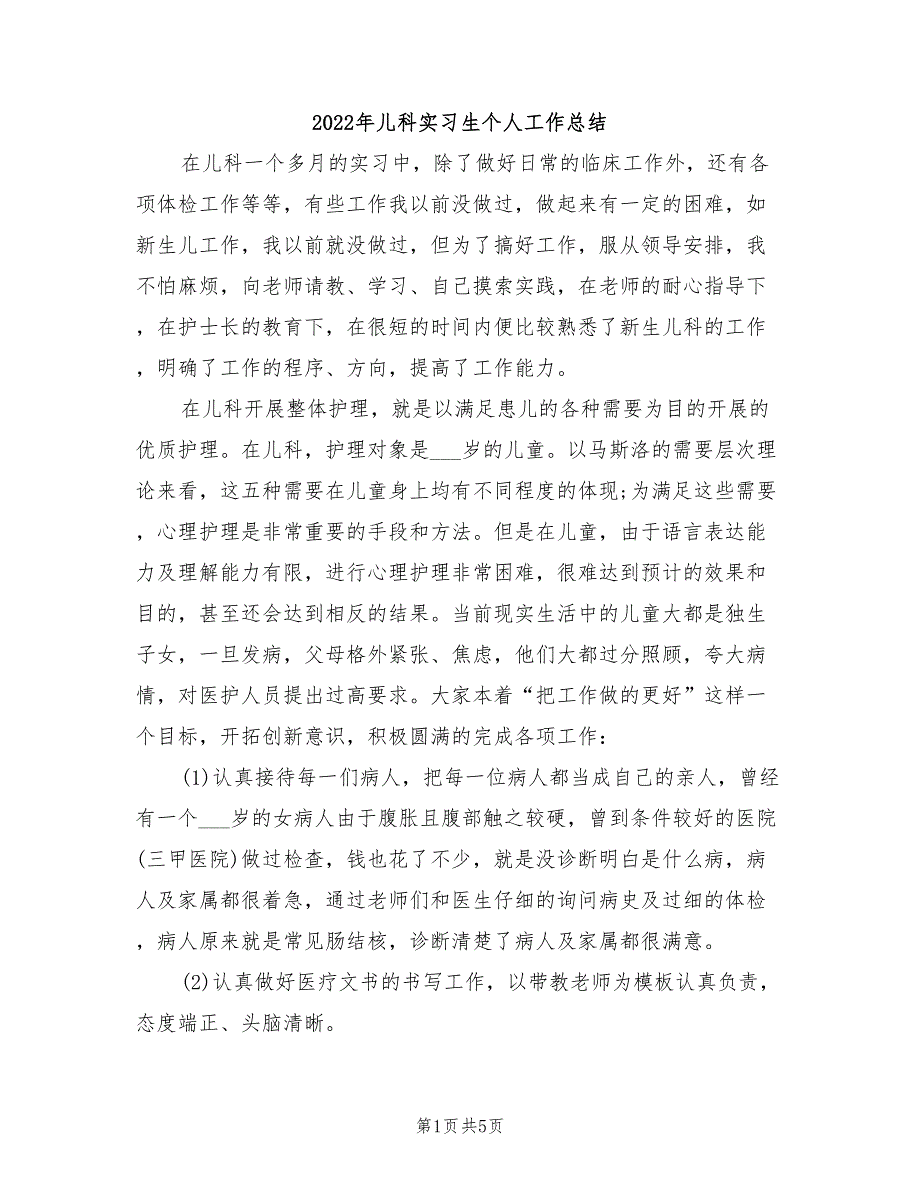 2022年儿科实习生个人工作总结
在儿科一个多月的实习中，除了做好日常的临床工作外，还有各
项体检工作等等，有些工作我以前没做过，做起来有一定的困难，如
新生儿工作，我以前就没做过，但为了搞好工作，服从领导安排，我
不怕麻烦，向老师请教、学习、自己摸索实践，在老师的耐心指导下
，在护士长的教育下，在很短的时间内便比较熟悉了新生儿科的工作
，明确了工作的程序、方向，提高了工作能力。
在儿科开展整体护理，就是以满足患儿的各种需要为目的开展的
优质护理。在儿科，护理对象是___岁的儿童。以马斯洛的需要层次理
论来看，这五种需要在儿童身上均有不同程度的体现;为满足这些需要
，心理护理是非常重要的手段和方法。但是在儿童，由于语言表达能
力及理解能力有限，进行心理护理非常困难，很难达到预计的效果和
目的，甚至还会达到相反的结果。当前现实生活中的儿童大都是独生
子女，一旦发病，父母格外紧张、焦虑，他们大都过分照顾，夸大病
情，对医护人员提出过高要求。大家本着“把工作做的更好”这样一
个目标，开拓创新意识，积极圆满的完成各项工作：
(1)认真接待每一们病人，把每一位病人都当成自己的亲人，曾经
有一个___岁的女病人由于腹胀且腹部触之较硬，曾到条件较好的医院
(三甲医院)做过检查，钱也花了不少，就是没诊断明白是什么病，病
人及家属都很着急，通过老师们和医生仔细的询问病史及过细的体检
，病人原来就是常见肠结核，诊断清楚了病人及家属都很满意。
(2)认真做好医疗文书的书写工作，以带教老师为模板认真负责，
态度端正、头脑清晰。
第1页 共5页